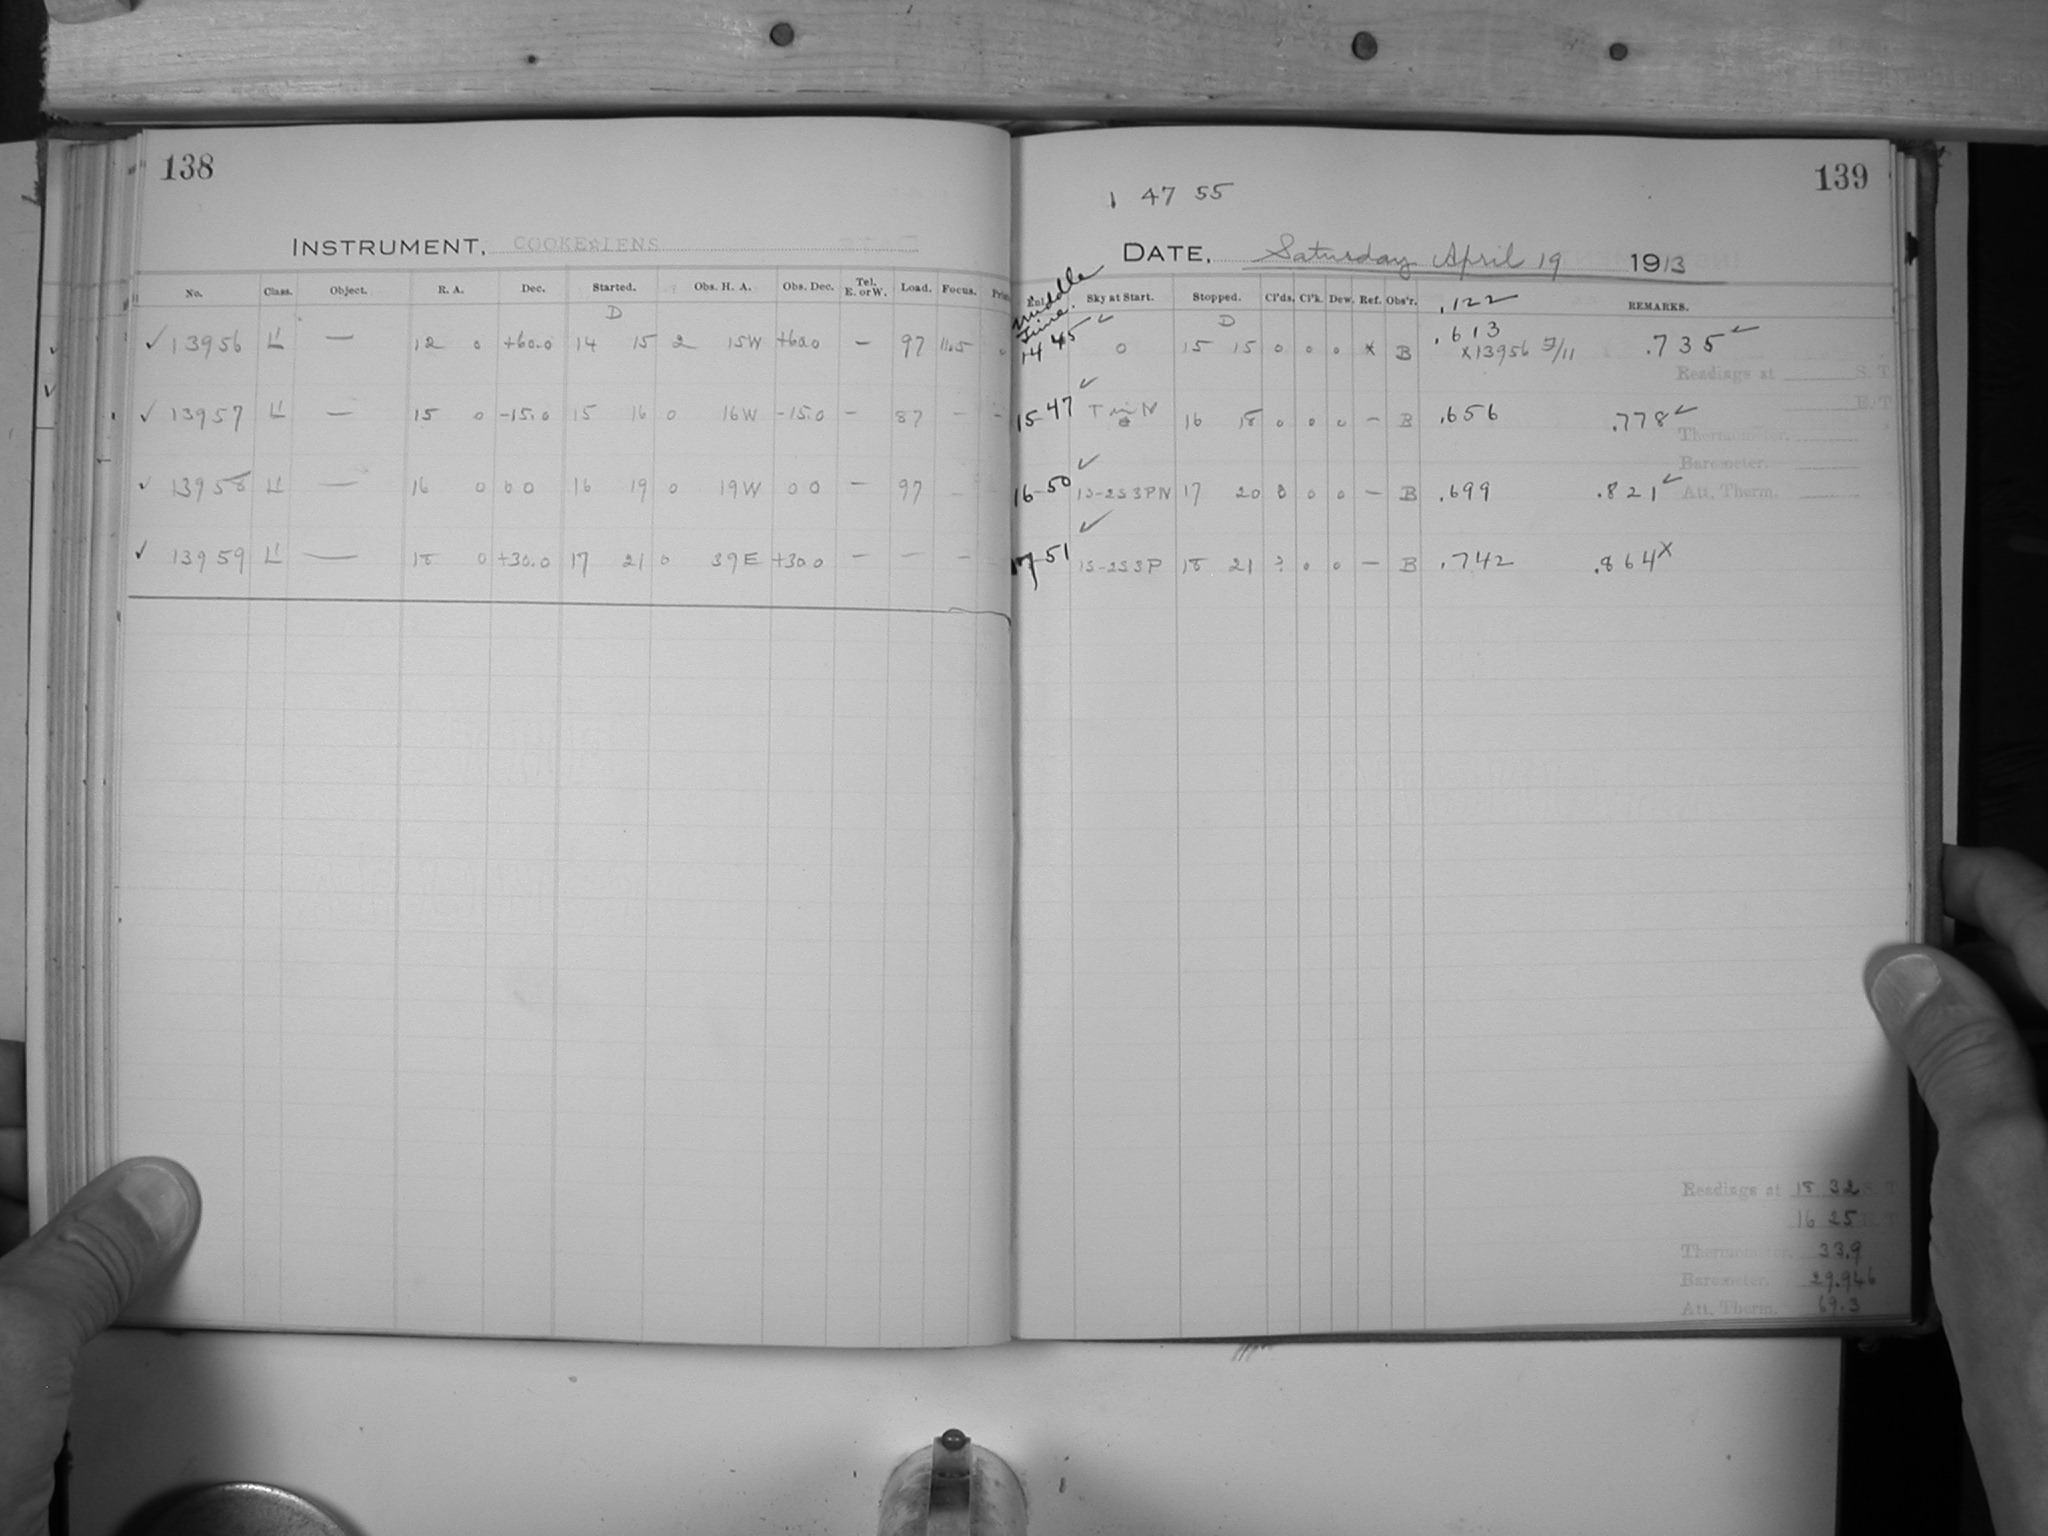 138
INSTRUMENT, COOKE LENS
No. Class. Object. R. A. Dec. Started. Obs. H. A. Obs. Dec. Tel. E. or W. Load. Focus.
D
✓ 13956 — 12 0 +60.0 14 15 2 15W +60.0 — 97 11.5 0
✓ 13957 — 15 0 -15.0 15 16 0 16W -15.0 — 87 — —
✓ 13958 — 16 0 0 0 16 19 0 19W 0 0 — 97 —
✓ 13959 — 18 0 +30.0 17 21 0 39E +30.0 — — —
139
1 47 55
DATE, Saturday April 19 1913
Middle Time.
Sky at Start. Stopped. Cl'ds. Cl'k. Dew. Ref. Obs'r. .122 REMARKS.
D
14 45 ✓ 0 15 15 0 0 0 x B .613 .735 ✓
x13956
Readings at S. T.
E. T.
15-47 ✓ T in N 16 18 0 0 0 — B .656 .778 ✓
Thermometer.
Barometer.
16-50 ✓ 1S-2S3PN 17 20 0 0 — B .699 .821 ✓
Att. Therm.
17-51 ✓ 1S-2S3P 18 21 ? 0 0 — B .742 .864 x
Readings at 18 32 S. T.
16 25
Thermometer. 33.9
Barometer. 29.946
Att. Therm. 69.3